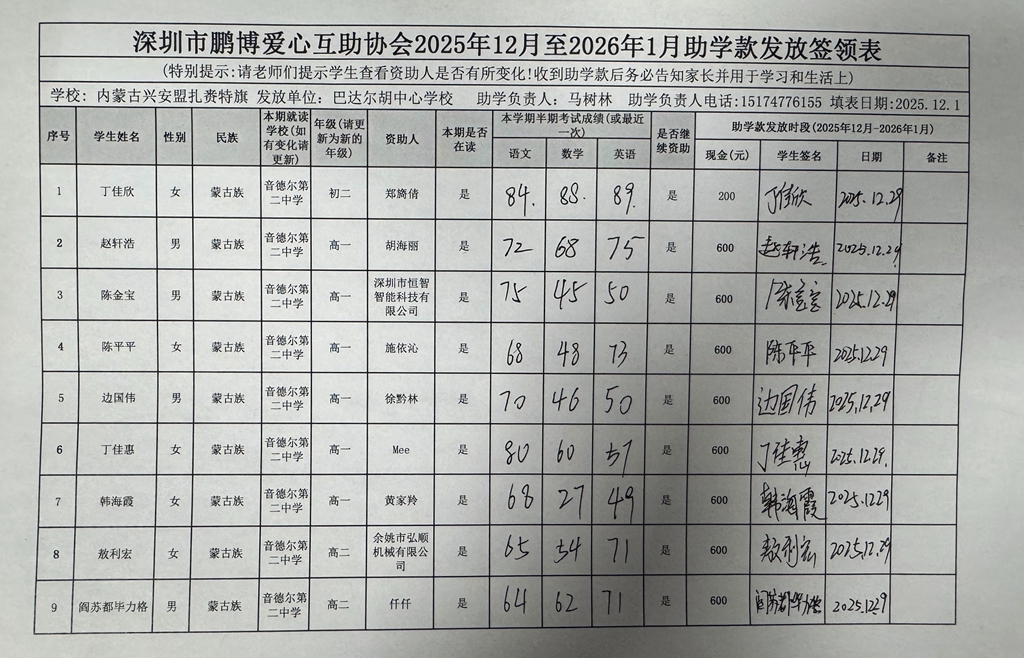 深圳市鹏博爱心互助协会2025年12月至2026年1月助学款发放签领表
(特别提示:请老师们提示学生查看资助人是否有所变化!收到助学款后务必告知家长并用于学习和生活上)
学校：内蒙古兴安盟扎赉特旗 发放单位：巴达尔胡中心学校 助学负责人：马树林 助学负责人电话:15174776155 填表日期:2025.12.1
序号 学生姓名 性别 民族 本期就读学校(如有变化请更新) 年级(请更新为新的年级) 资助人 本期是否在读 本学期半期考试成绩(或最近一次) 是否继续资助 助学款发放时段(2025年12月-2026年1月)
语文 数学 英语 现金(元) 学生签名 日期 备注
1 丁佳欣 女 蒙古族 音德尔第二中学 初二 郑旖倩 是 84. 88. 89. 是 200 丁佳欣 2025.12.29
2 赵轩浩 男 蒙古族 音德尔第二中学 高一 胡海丽 是 72 68 75 是 600 赵轩浩 2025.12.29
3 陈金宝 男 蒙古族 音德尔第二中学 高一 深圳市恒智智能科技有限公司 是 75 45 50 是 600 陈金宝 2025.12.29
4 陈平平 女 蒙古族 音德尔第二中学 高一 施依沁 是 68 48 73 是 600 陈平平 2025.12.29
5 边国伟 男 蒙古族 音德尔第二中学 高一 徐黔林 是 70 46 50 是 600 边国伟 2025.12.29
6 丁佳惠 女 蒙古族 音德尔第二中学 高一 Mee 是 80 60 57 是 600 丁佳惠 2025.12.29.
7 韩海霞 女 蒙古族 音德尔第二中学 高一 黄家羚 是 68 27 49 是 600 韩海霞 2025.1229
8 敖利宏 女 蒙古族 音德尔第二中学 高二 余姚市弘顺机械有限公司 是 65 54 71 是 600 敖利宏 2025.12.29
9 阎苏都毕力格 男 蒙古族 音德尔第二中学 高二 仟仟 是 64 62 71 是 600 阎苏都毕力格 2025.1229